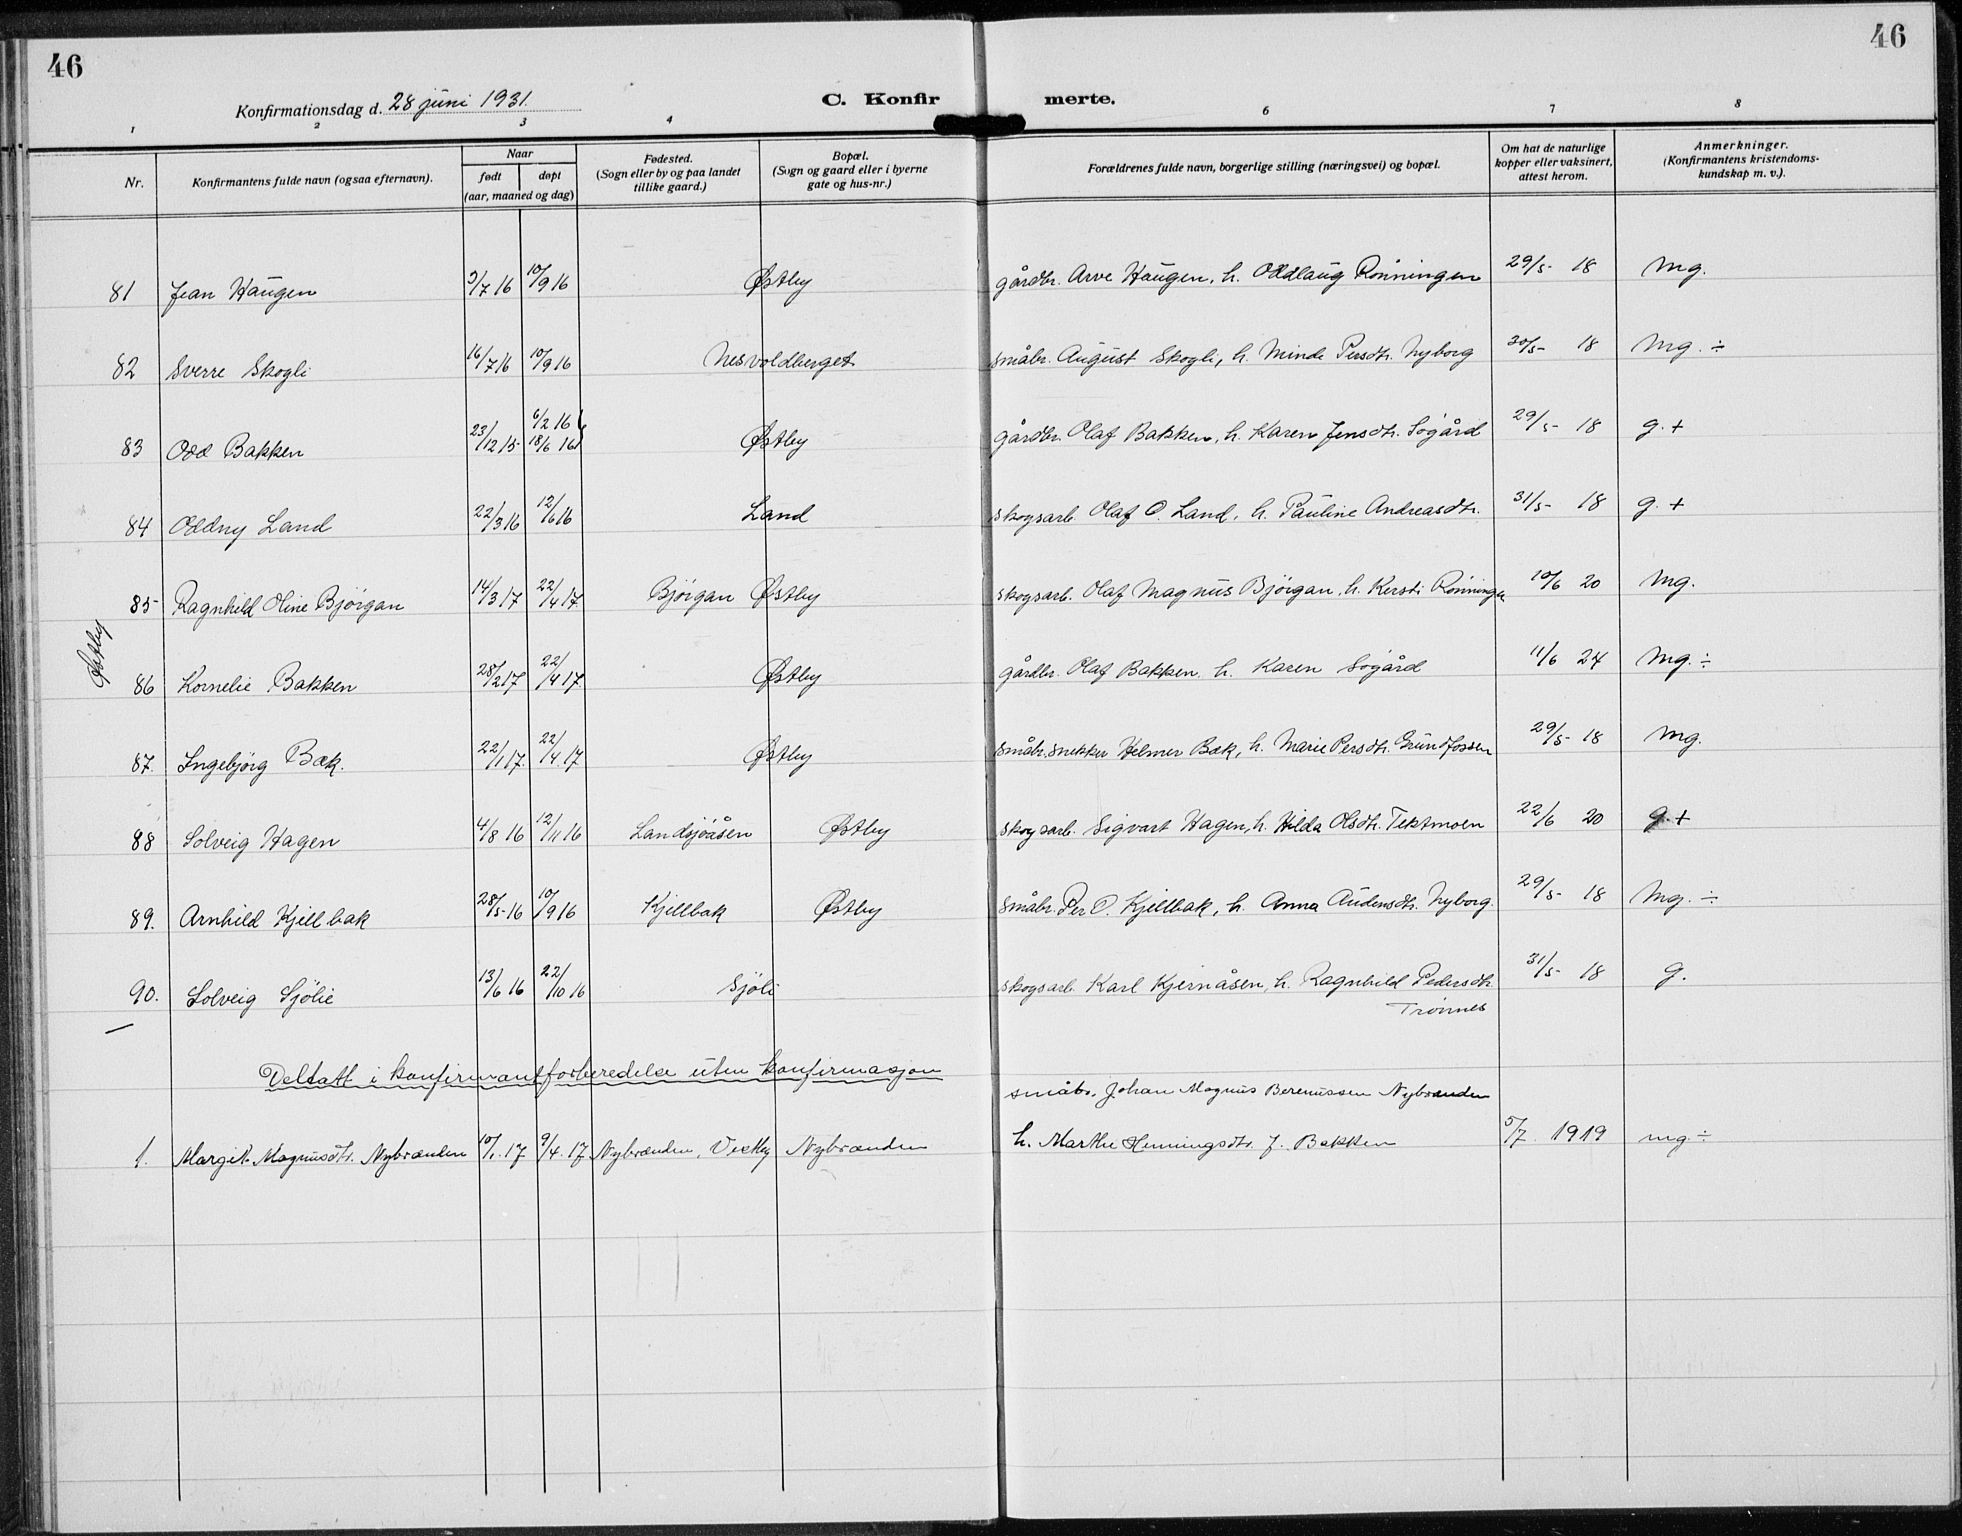 46
46
Konfirmationsdag d. 28 juni 1931.
C. Konfirmerte.
1 2 3 4 6 7 8
Nr.
Konfirmantens fulde navn (ogsaa efternavn).
Naar
født
døpt
(aar, maaned og dag)
Fødested.
(Sogn eller by og paa landet
tillike gaard.)
Bopæl.
(Sogn og gaard eller i byerne
gate og hus-nr.)
Forældrenes fulde navn, borgerlige stilling (næringsvei) og bopæl.
Om hat de naturlige
kopper eller vaksinert,
attest herom.
Anmerkninger.
(Konfirmantens kristendoms-
kundskap m. v.).
81 Jean Haugen 3/7 16 10/9 16 Østby gårdbr. Arve Haugen, h. Oddlaug Rönningen 29/5 18 Mg.
82 Sverre Skogli 16/7 16 10/9 16 Nesvoldberget småbr. August Skogli, h. Minda Persdtr. Nyborg 30/5 18 Mg. ÷
83 Odd Bakken 23/12 15 6/2 16 18/6 16 Østby gårdbr. Olaf Bakken, h. Karen Jensdtr. Sögård 29/5 18 g. +
84 Oddny Land 22/3 16 12/6 16 Land skogsarb. Olaf O. Land, h. Pauline Andreasdtr. 31/5 18 g. +
85 Ragnhild Oline Bjørgan 14/3 17 22/4 17 Bjørgan Østby skogsarb. Olaf Magnus Bjørgan, h. Kersti Rönningen 10/6 20 Mg.
Østby
86 Kornelie Bakken 28/2 17 22/4 17 Østby gårdbr. Olaf Bakken h. Karen Sögård 11/6 24 Mg. ÷
87. Ingebjørg Bæk. 22/1 17 22/4 17 Østby småbr. snekker Helmer Bæk, h. Marie Persdtr. Grundfossen 29/5 18 Mg.
88 Solveig Hagen 4/8 16 12/11 16 Landsjøåsen Østby skogsarb. Sigvart Hagen, h. Hilda Olsdtr. Tektmoen 22/6 20 g. +
89. Arnhild Kjellbak 28/5 16 10/9 16 Kjellbak Østby småbr. Per O. Kjellbak, h. Anna Audensdtr. Nyborg. 29/5 18 Mg. ÷
90. Solveig Sjølie 13/6 16 22/10 16 Sjøli skogsarb. Karl Kjernåsen, h. Ragnhild Pedersdtr. 31/5 18 g.
Trønnes
Deltatt i konfirmantforberedelse uten konfirmasjon
småbr. Johan Magnus Berenussen Nybrænden
1. Margit Magnusdtr. Nybrænden 10/1 17 9/4 17 Nybrænden, Vestby Nybrænden h. Marthe Henningsdtr. f. Bakken 5/7 1919 mg ÷